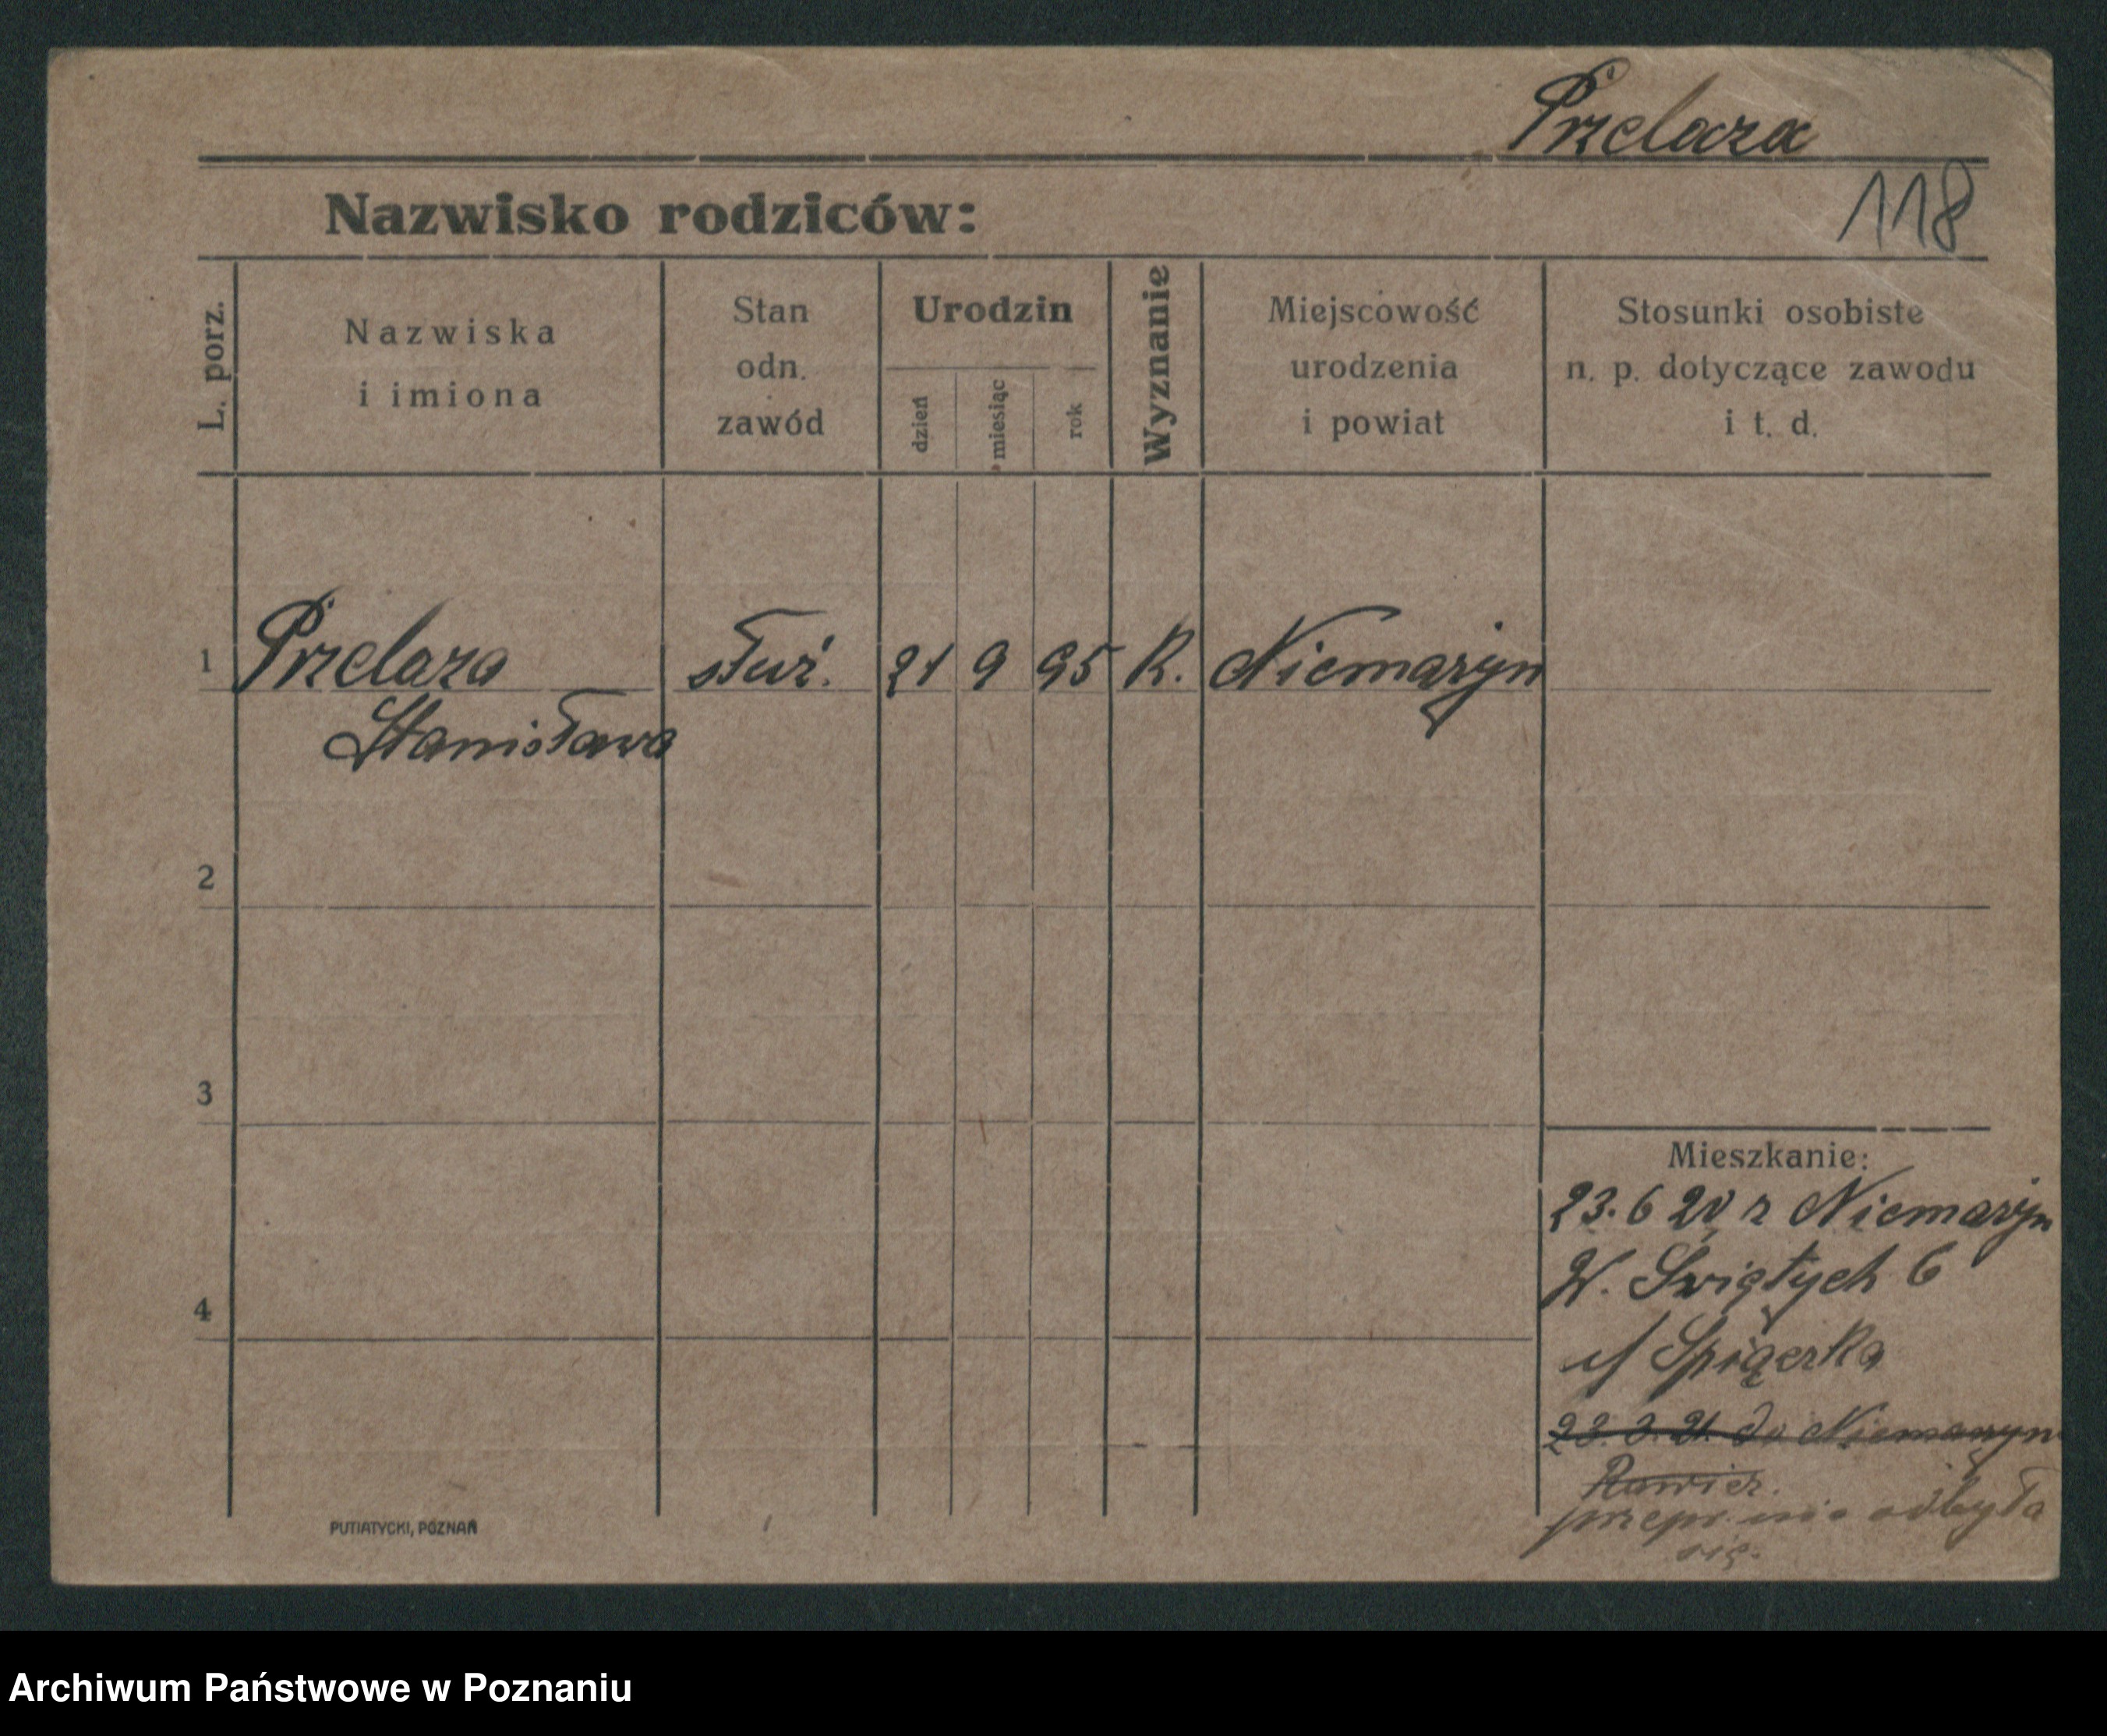 Przelaza
118
Nazwisko rodziców:
L. porz.
Nazwiska
i imiona
Stan
odn.
zawód
Urodzin
dzień
miesiąc
rok
Wyznanie
Miejscowość
urodzenia
i powiat
Stosunki osobiste
n. p. dotyczące zawodu
i t. d.
1 Przelaza służ. 21 9 95 R. Niemarzyn
Stanisława
2
3
4
Mieszkanie:
23. 6 20 z Niemarzyn
W. Świętych 6
u/
do Niemarzyn
przepr. nie odbyła
się.
PUTIATYCKI, POZNAŃ
Archiwum Państwowe w Poznaniu